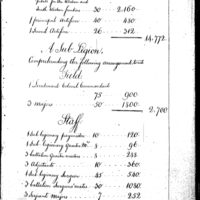 and
South Western frontiers 30 2.160
1 principal Artificer 40 480
1 second Artificer 26 312
14.772
A Sub-Legion,
Comprehending the following arrangement, to wit
Field
1 Lieutenant Colonel Commandant
75 900
3 majors 50 1800
2.700
Staff
1 Sub Legionary paymaster 10 120
1 Sub Legionary Quarter Mr 8 96
3 battalion Quarter masters 8 288
3 Adjutants 10 360
1 Sub Legionary Surgeon 45 540
3 battalion Surgeons mates 30 1080
3 Serjeant Majors 7 252